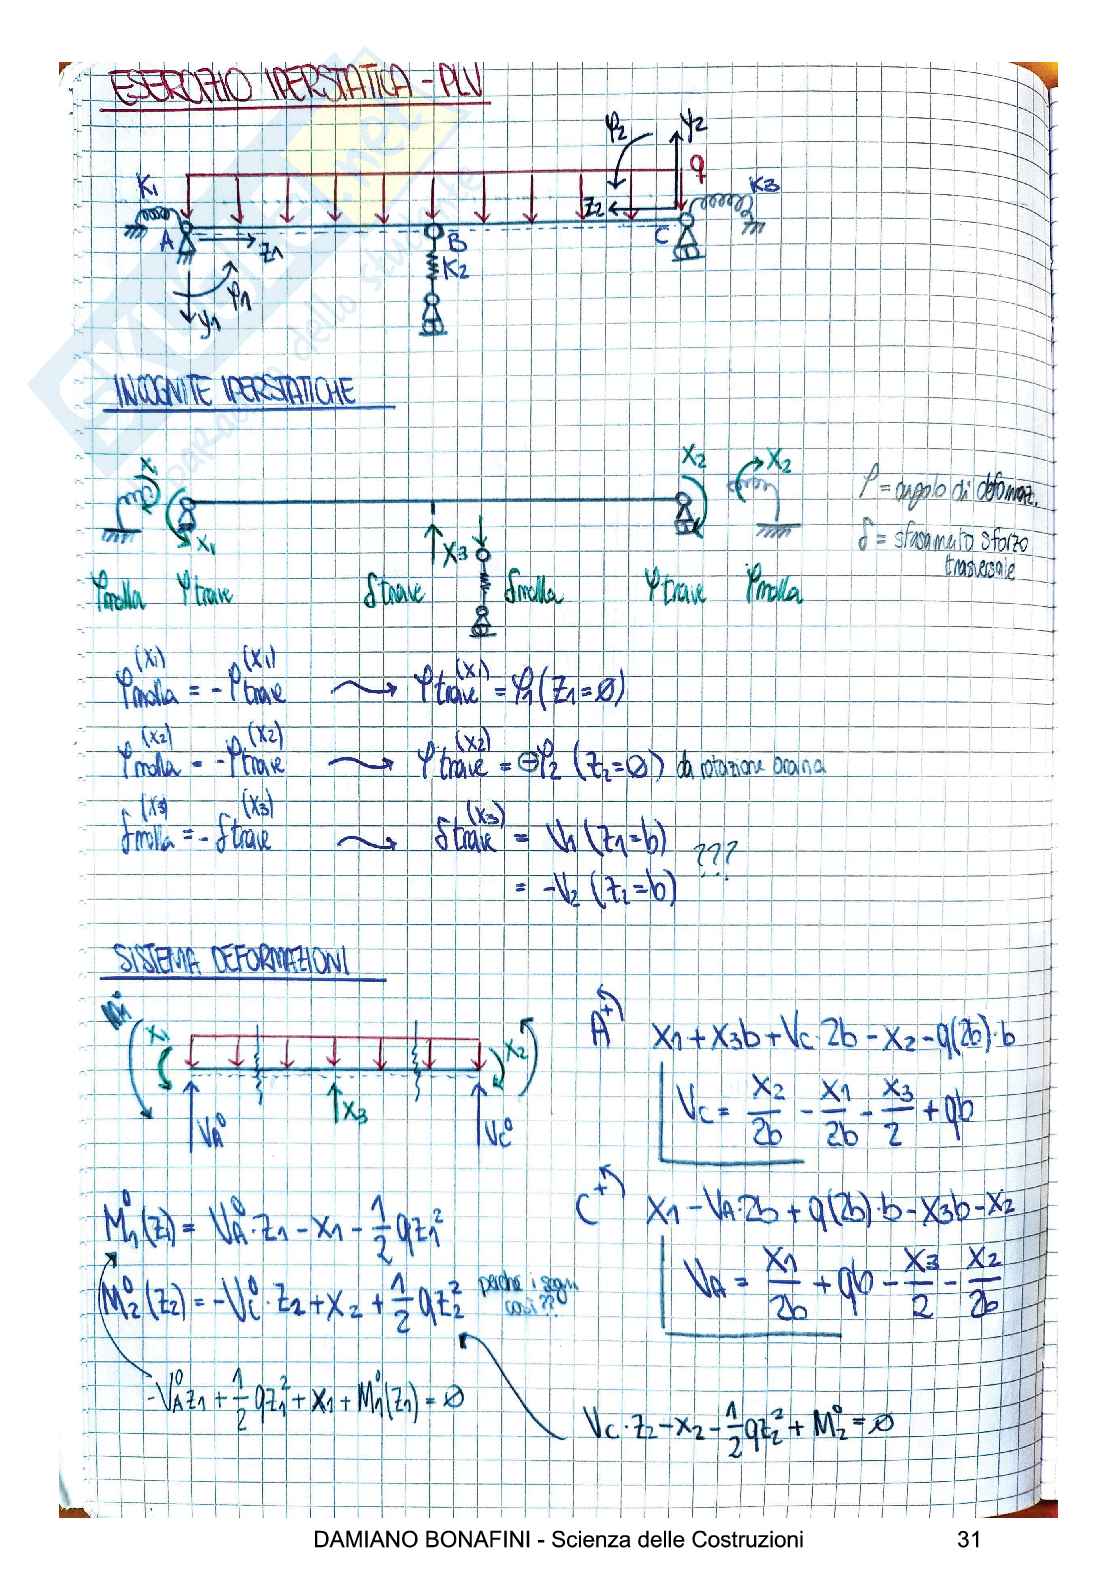 ESERCIZIO IPERSTATICA - PLV
φ2 y2
q
K1 K3
z2
A z1 B C
K2
φ1
y1
INCOGNITE IPERSTATICHE
X1 X2 X2
φ = angolo di deformaz.
X1 X3
δ = sfasamento sforzo
trasversale
φmolla φtrave δtrave δmolla φtrave φmolla
φmolla(X1) = - φtrave(X1) → φtrave(X1) = φ1 (z1=0)
φmolla(X2) = - φtrave(X2) → φtrave(X2) = ⊖φ2 (z2=0) da rotazione oraria
δmolla(X3) = - δtrave(X3) → δtrave(X3) = V1 (z1=b) ???
= -V2 (z2=b)
SISTEMA DEFORMAZIONI
X1 X2
X3
VA° VC°
A+ X1 + X3b + VC·2b - X2 - q(2b)·b
VC = X2/2b - X1/2b - X3/2 + qb
C+ X1 - VA·2b + q(2b)·b - X3b - X2
VA = X1/2b + qb - X3/2 - X2/2b
M1°(z1) = VA°·z1 - X1 - 1/2 qz1²
M2°(z2) = -VC°·z2 + X2 + 1/2 qz2² perché i segni
così??
-VA°z1 + 1/2 qz1² + X1 + M1°(z1) = 0
VC·z2 - X2 - 1/2 qz2² + M2° = 0
DAMIANO BONAFINI - Scienza delle Costruzioni 31